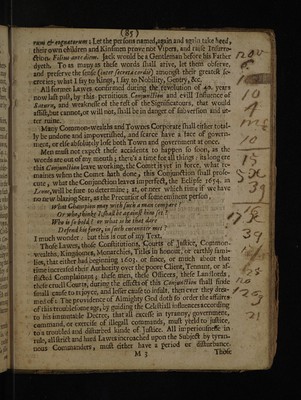 (85)
rum & cognatorum: Let the persons named, again and again take heed,
their own children and Kinsmen prove not Vipers, and raise Insurre-
ction. Filius ante diem. Jack would be a Gentleman before his Father
dyeth. To as many as these words shall arive, let them observe,
and preserve the sense (inter secreta cordis) amongst these greatest se-
crecies; what I say to Kings, I say to Nobility, Gentry, &c.
All former Lawes confirmed during the revolution of 40. years
now last past, by this pernitious Conjunction and evill Influence of
Saturn, and weaknesse of the rest of the Significatours, that would
assist, but cannot, or will not, shall be in danger of subversion and ut-
ter ruine.
Many Common-wealths and Townes Corporate shall either total-
ly be undone and impoverished, and scarce have a face of govern-
ment, or else absolutely lose both Town and government at once.
Men must not expect these accidents to happen so soon, as the
words are out of my mouth; there's a time for all things: its long ere
this Conjunction leave working, the Comet is yet in force, what re-
maines when the Comet hath done, this Conjunction shall prose-
cute, what the Conjunction leaves imperfect, the Eclipse 1654. in
Leone, will be sure to determine; at, or neer which time if we have
no new blazing Star, as the Precursor of some eminent person,
What Champion may with such a man compare?
Or who, thinke I, shall be against him set?
Who is so bold? or what is he that dare
Defend his force, in such encounter met?
I much wonder: but this is out of my Text.
Those Lawes, those Constitutions, Courts of Justice, Common-
wealths, Kingdomes, Monarchies, Titles in Honour, or earthly fami-
lies, that either had beginning 1603. or since, or much about that
time increased their Authority over the poore Client, Tennant, or af-
flicted Complainant; these men, these Officers, these Landlords,
these cruell Courts, during the effects of this Conjunction shall finde
small cause to rejoyce, and lesser cause to insult, then ever they drea-
med of: The providence of Almighty God doth so order the affaires
of this troublesome age, by guiding the Celestiall influences according
to his immutable Decree, that all excesse in tyranny, government,
command, or exercise of illegall commands, must yeeld to justice,
to a troubled and disturbed kinde of Justice. All imperiousnesse in
rule, all strict and hard Lawes incroached upon the Subject by tyran-
nous Commanders, must either have a period or disturbance.
M 3
Those